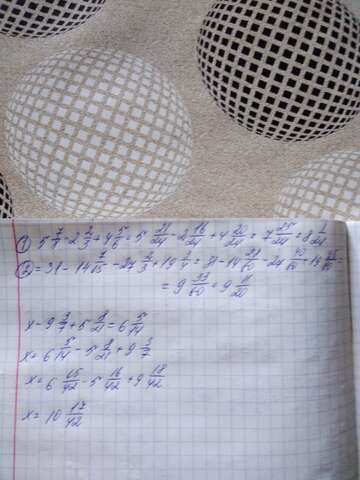 ① 5 7/8 - 2 2/3 + 4 5/6 = 5 21/24 - 2 16/24 + 4 20/24 = 7 25/24 = 8 1/24
② = 31 - 14 7/15 - 2/3 + 19 = 31 - 14 28/60 - 40/60 + 19 =
= 9 33/60 = 9 11/20
x - 9 3/7 + 5 8/21 = 6 5/14
x = 6 5/14 - 5 8/21 + 9 3/7
x = 6 15/42 - 5 16/42 + 9 18/42
x = 10 17/42